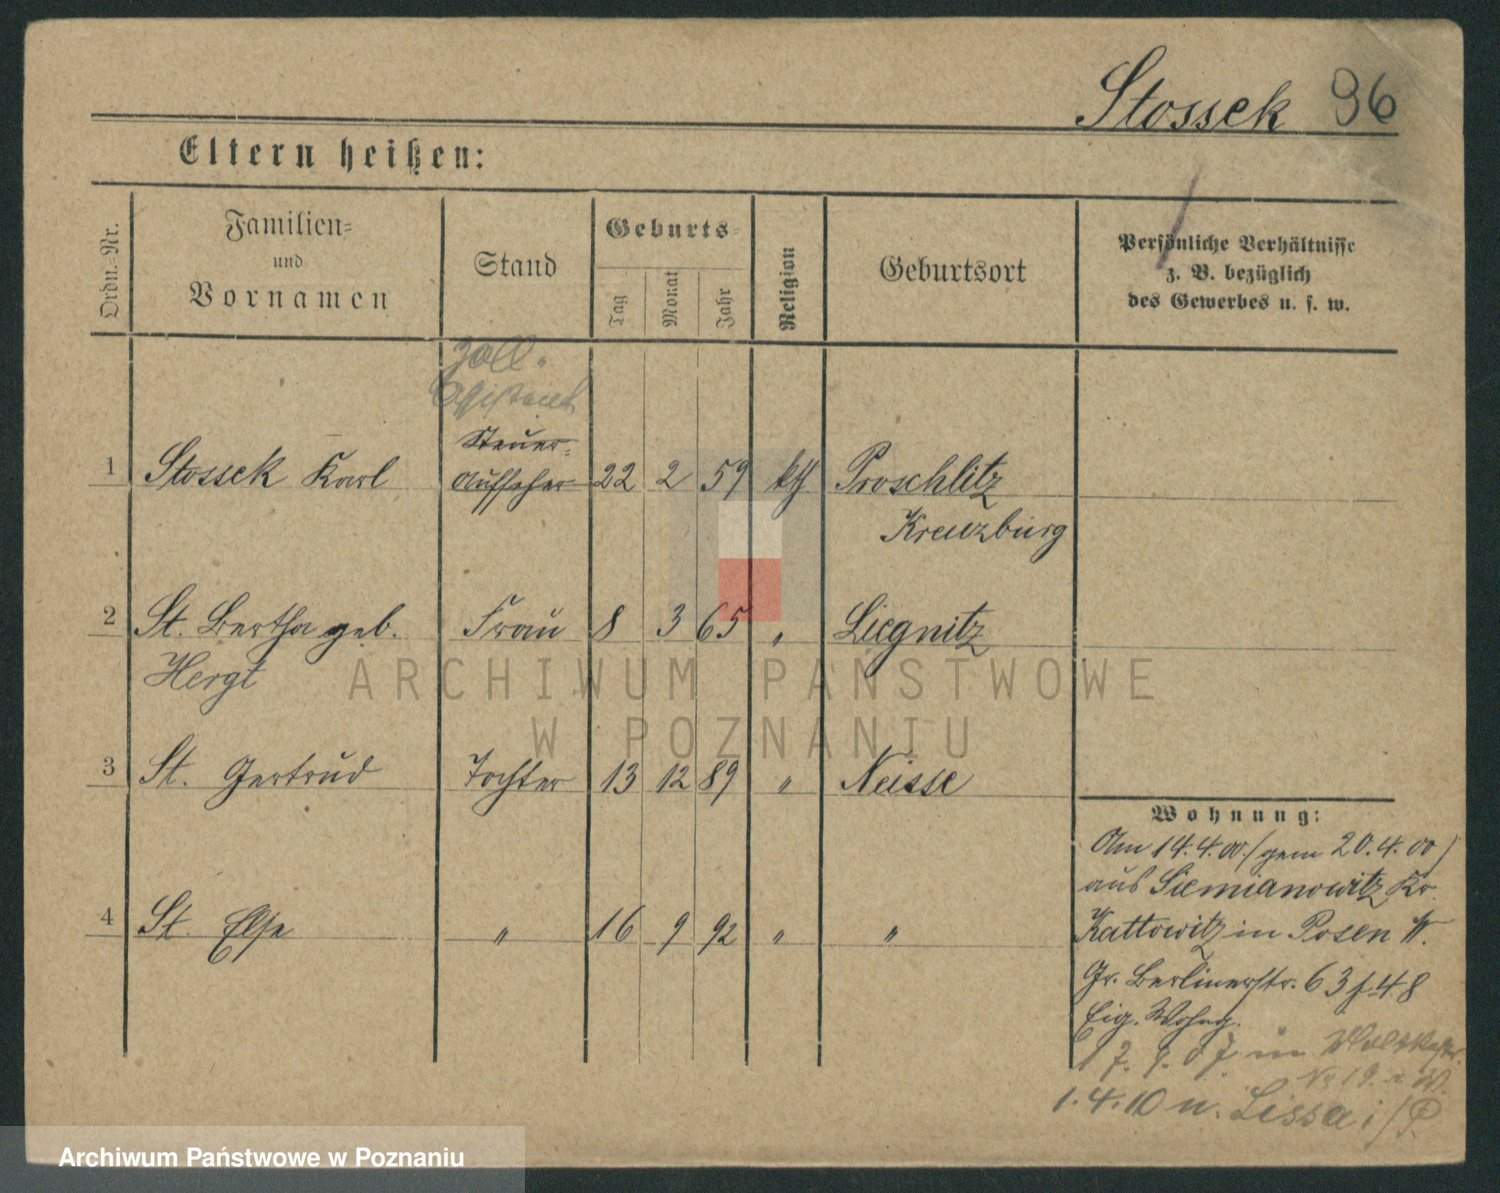 Stossek 96
Eltern heißen:
Ordn.-Nr.
Familien-
und
Vornamen
Stand
Geburts-
Tag
Monat
Jahr
Religion
Geburtsort
Persönliche Verhältnisse
z. B. bezüglich
des Gewerbes u. s. w.
Zoll-
Assistent
Steuer-
1 Stossek Karl Aufseher 22 2 59 kth Proschlitz
Kreuzburg
2 St. Bertha geb. Frau 8 3 65 " Liegnitz
Hergt
ARCHIWUM PAŃSTWOWE
W POZNANIU
3 St. Gertrud Tochter 13 12 89 " Neisse
4 St. Else " 16 9 92 " "
Wohnung:
Am 14.4.00 (gem 20.4.00)
aus Siemianowitz Kr.
Kattowitz in Posen W.
Gr. Berlinerstr. 63
Eig. Wohng.
1.4.10 n. Lissa i/P
Archiwum Państwowe w Poznaniu